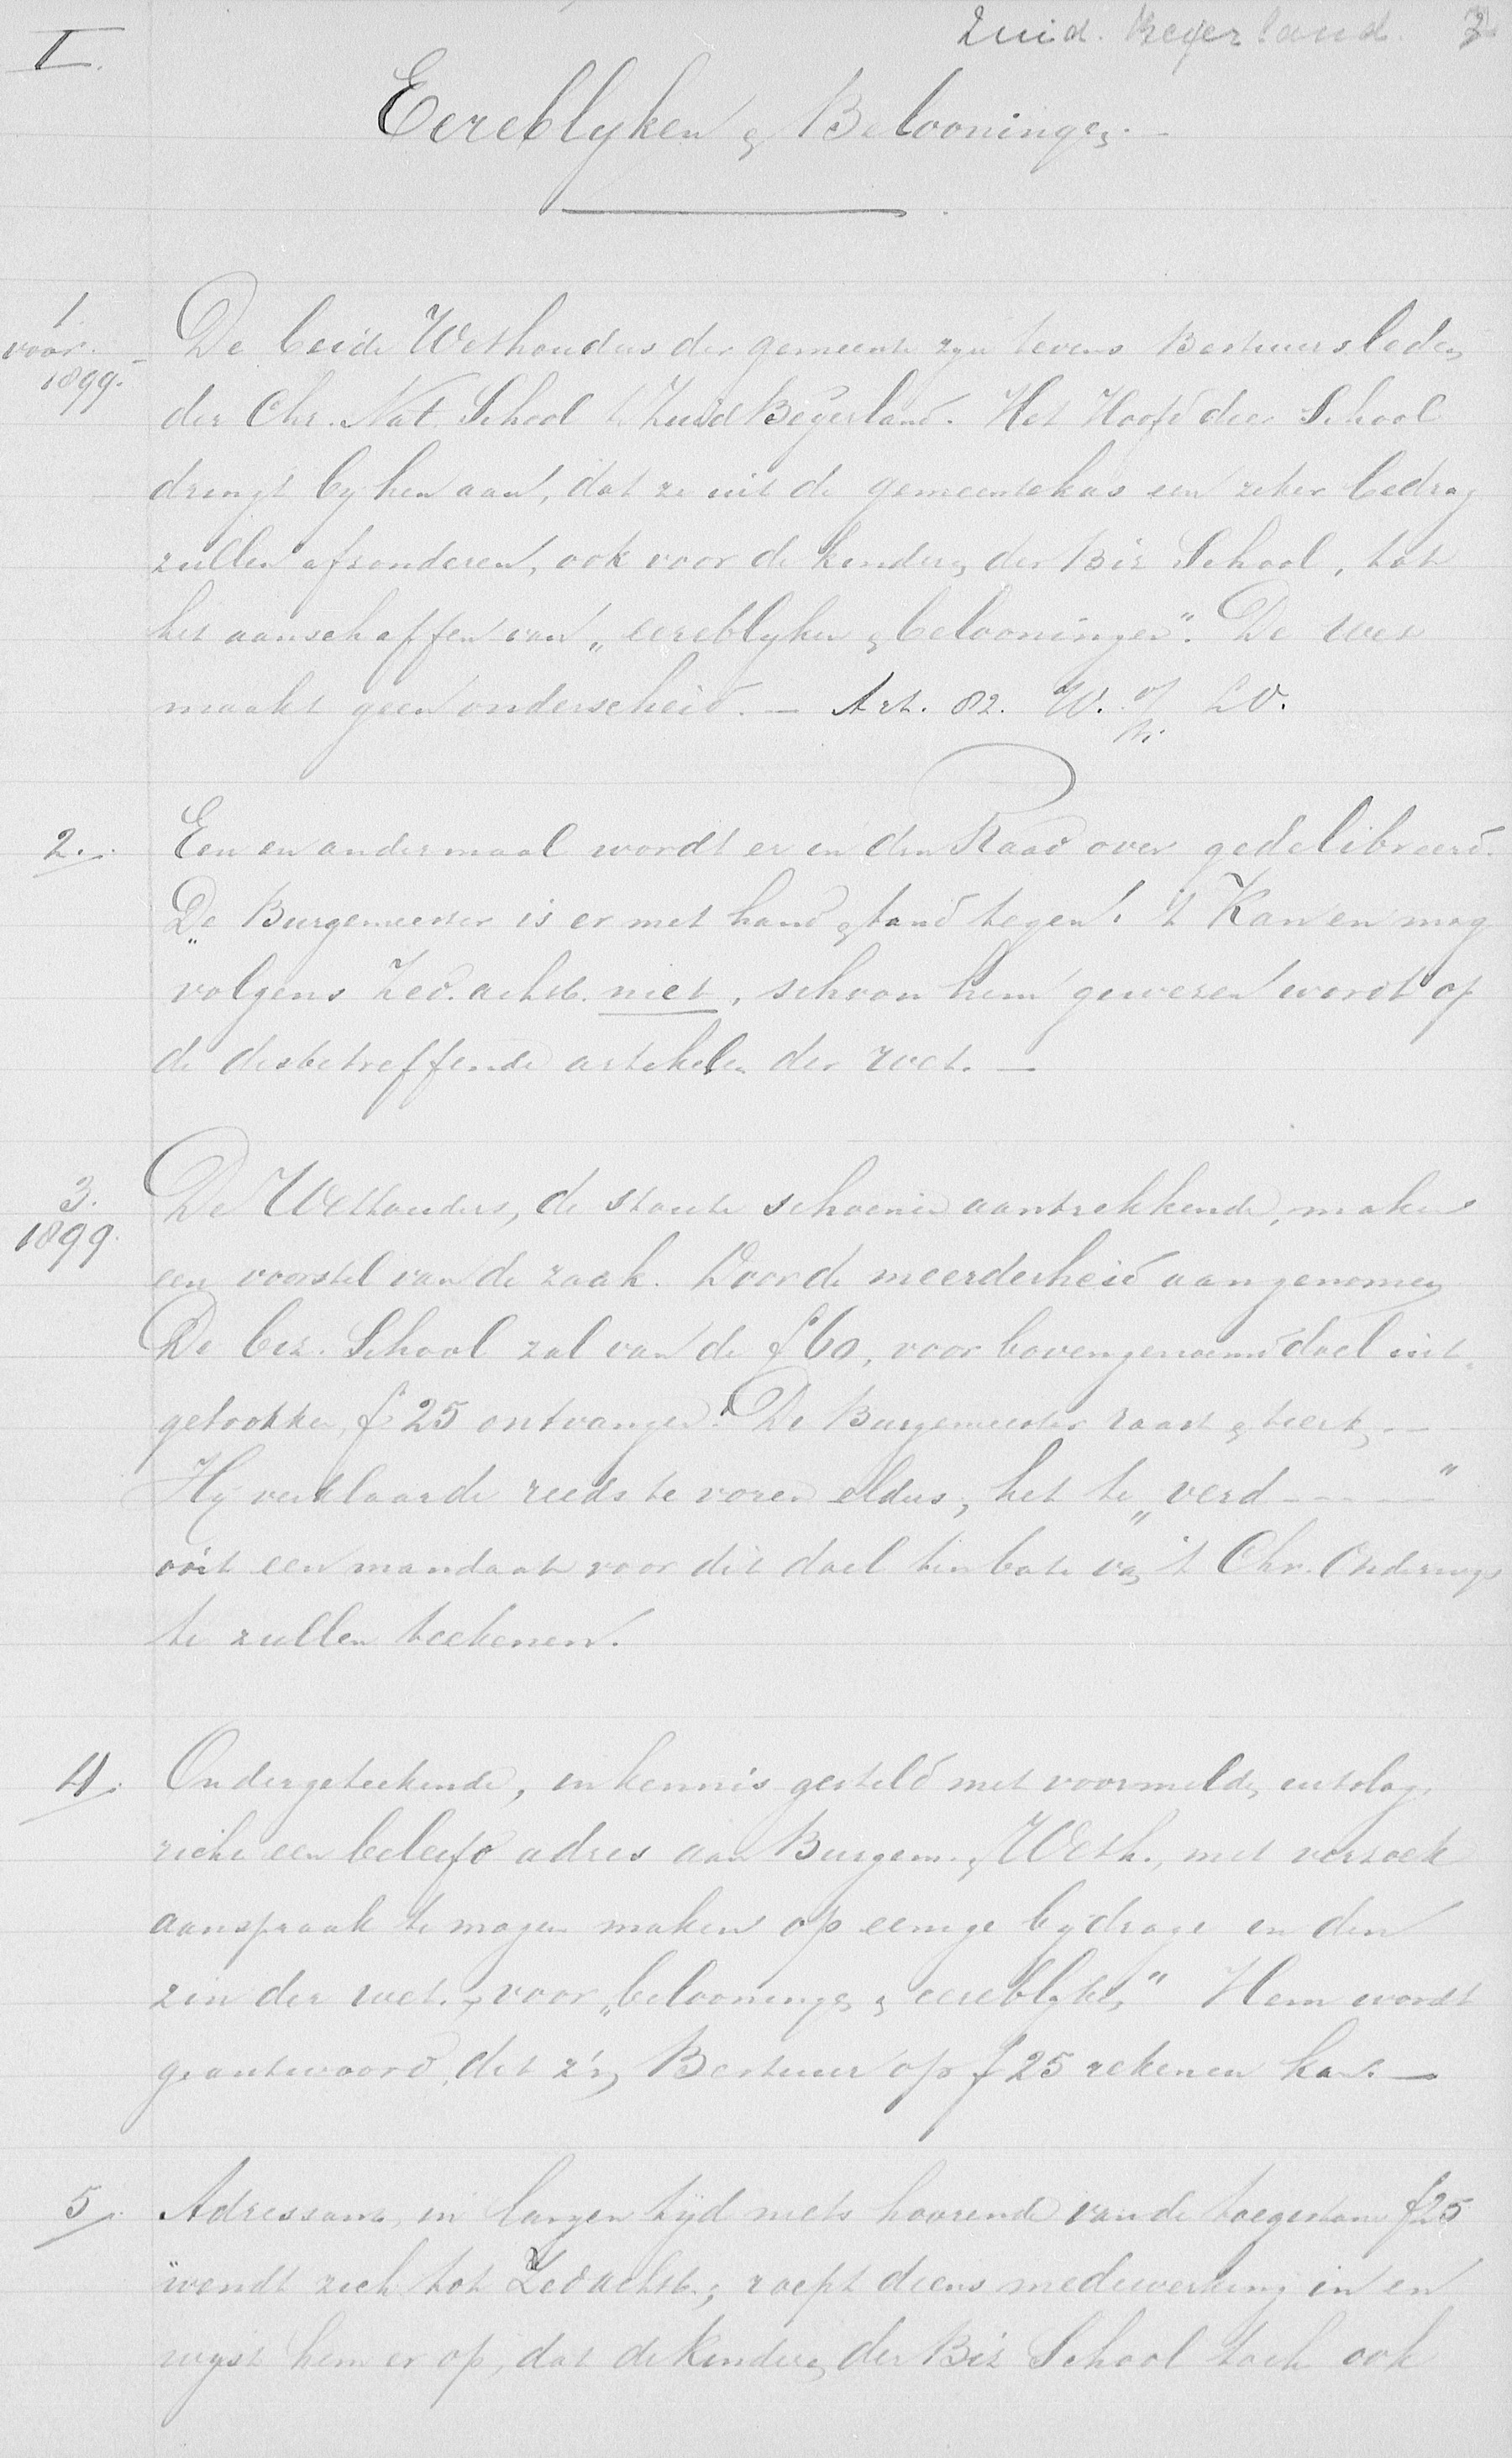 Zuid. Beyerland. 2
I.
Eereblyken & Belooningen.
1
voor
1899.
De beide Wethouders der gemeente zyn tevens Bestuursleden
der Chr. Nat. School te Zuid Beyerland. Het Hoofd dier School
dringt by hen aan, dat ze uit de gemeentekas een zeker bedrag
zullen afzonderen, ook voor de kinderen der Biz School, tot
het aanschaffen van „eereblyken & belooningen". De wet
maakt geen onderscheid. — Art. 82. W. op L O.
2.
Een en andermaal wordt er in den Raad over gedelibreerd.
De Burgemeester is er met hand & tand tegen! 't Kan en mag
volgens Zed. achtb. niet, schoon hem gewezen wordt op
de desbetreffende artikelen der wet. —
3.
1899.
De Wethouders, de stoute schoenen aantrekkende, maken
een voorstel van de zaak. Door de meerderheid aangenomen
De bez. School zal van de f 60, voor bovengenoemd doel uit-
getrokken, f 25 ontvangen. De Burgemeester raast & tiert, —
Hy verklaarde reeds te voren elders, het te „verd - - - - "
ooit een mandaat voor dit doel ten bate van 't Chr. Onderwys
te zullen teekenen.
4.
Ondergeteekende, in kennis gesteld met voormelden uitslag,
richt een beleefd adres aan Burgem. & Weth., met verzoek
aanspraak te mogen maken op eenige bydrage in den
zin der wet, voor „belooningen & eereblyken" Hem wordt
geantwoord, dat z'n Bestuur op f 25 rekenen kan. —
5.
Adressant, in langen tyd niets hoorende van de toegestane f 25
wendt zich tot Zed achtb.; roept diens medewerking in en
wyst hem er op, dat de kinderen der Biz School toch ook